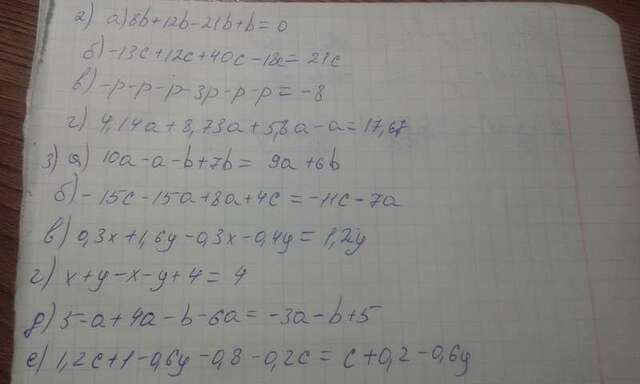 2) а) 8b+12b-21b+b=0
б) -13c+12c+40c-18c=21c
в) -p-p-p-3p-p-p=-8
г) 4,14a+8,73a+5,8a-a=17,67
3) а) 10a-a-b+7b= 9a+6b
б) -15c-15a+8a+4c=-11c-7a
в) 0,3x+1,6y-0,3x-0,4y=1,2y
г) x+y-x-y+4=4
д) 5-a+4a-b-6a=-3a-b+5
е) 1,2c+1-0,6y-0,8-0,2c= c+0,2-0,6y